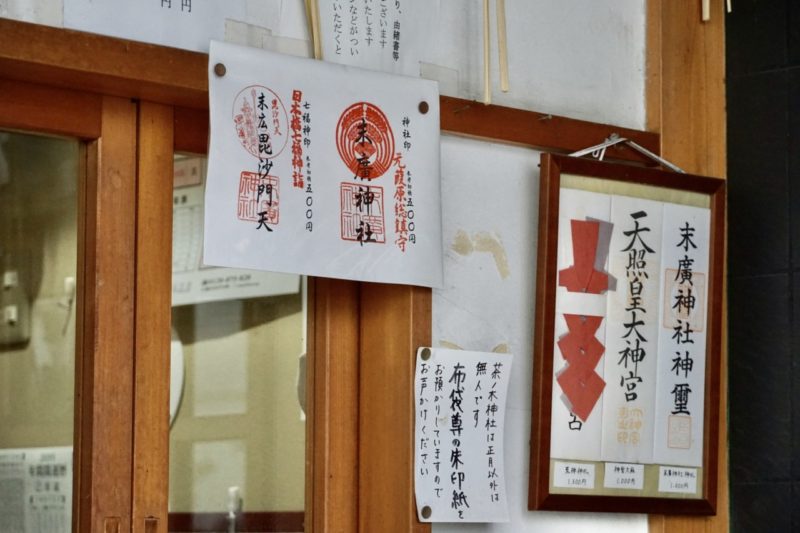 り、由緒書等
ございます
いたします
などがつい
いただくと
円
神社印
五〇〇円
元葭原総鎮守
末廣神社
七福神印
五〇〇円
日本橋七福神詣
末広毘沙門天
毘沙門天
茶ノ木神社は正月以外は
無人です
布袋尊の朱印紙を
お預かりしていますので
お声かけください
末廣神社神璽
天照皇大神宮
末廣神社神札
神宮大麻
1,000円
荒神神札